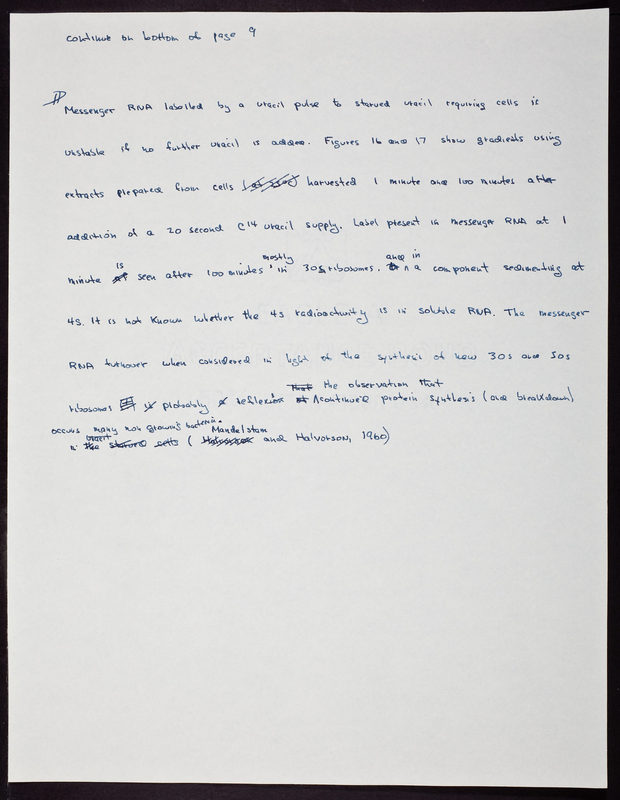 continue on bottom of page 9
Messenger RNA labelled by a uracil pulse to starved uracil requiring cells is
unstable if no further uracil is added. Figures 16 and 17 show gradients using
extracts prepared from cells harvested 1 minute and 100 minutes after
addition of a 20 second C14 uracil supply. Label present in messenger RNA at 1
is mostly and in
minute seen after 100 minutes in 30s ribosomes. a component sedimenting at
4s. It is not known whether the 4s radioactivity is in soluble RNA. The messenger
RNA turnover when considered in light of the synthesis of new 30s and 50s
that the observation that
ribosomes is probably a reflexion continued protein synthesis (and breakdown)
occurs many non growing bacteria.
Mandelstam
in the starved cells ( and Halvorson, 1960)